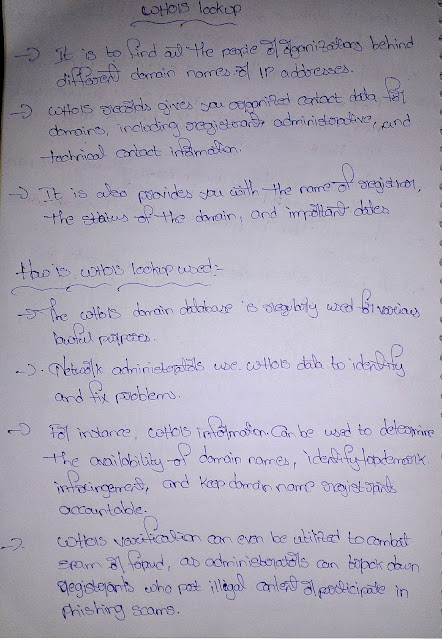 WHOIS lookup
→ It is to find out the people or organizations behind
different domain names or IP addresses.
→ WHOIS records gives you organized contact data for
domains, including registrant, administrative, and
technical contact information.
→ It is also provides you with the name of registrar,
the status of the domain, and important dates
How is WHOIS lookup used:-
→ The WHOIS domain database is regularly used for various
lawful purposes.
→ Network administrators use WHOIS data to identify
and fix problems.
→ For instance, WHOIS information can be used to determine
the availability of domain names, identify trademark
infringement, and keep domain name registrants
accountable.
→ WHOIS verification can even be utilized to combat
spam or fraud, as administrators can track down
registrants who post illegal content or participate in
phishing scams.